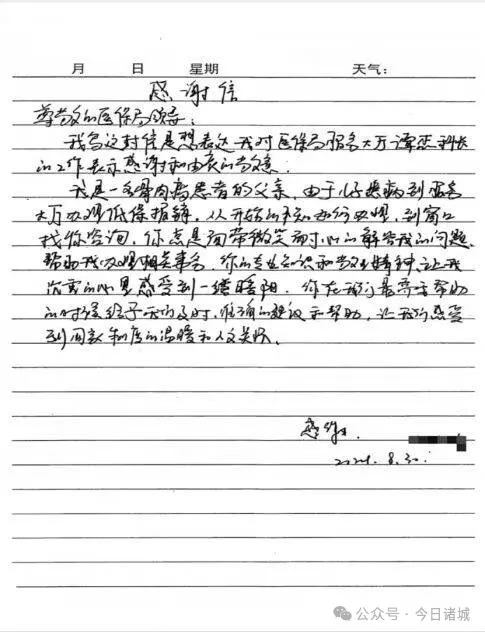 月 日 星期 天气:
感谢信
尊敬的医保局领导:
我写这封信是想表达我对医保局服务大厅谭杰科长
的工作表示感谢和由衷的敬意。
我是一名骨肉离患者的父亲,由于儿子患病到服务
大厅办理低保报销,从开始的不知如何办理,到窗口
找你咨询,你总是面带微笑耐心的解答我的问题,
帮助我办理相关事务,你的专业知识和敬业精神,让我
沉重的心里感受到一缕暖阳。你在我们最需要帮助
的时候给予我们及时,准确的建议和帮助,让我们感受
到国家制度的温暖和人文关怀。
感谢人
2024.8.30.
公众号·今日诸城